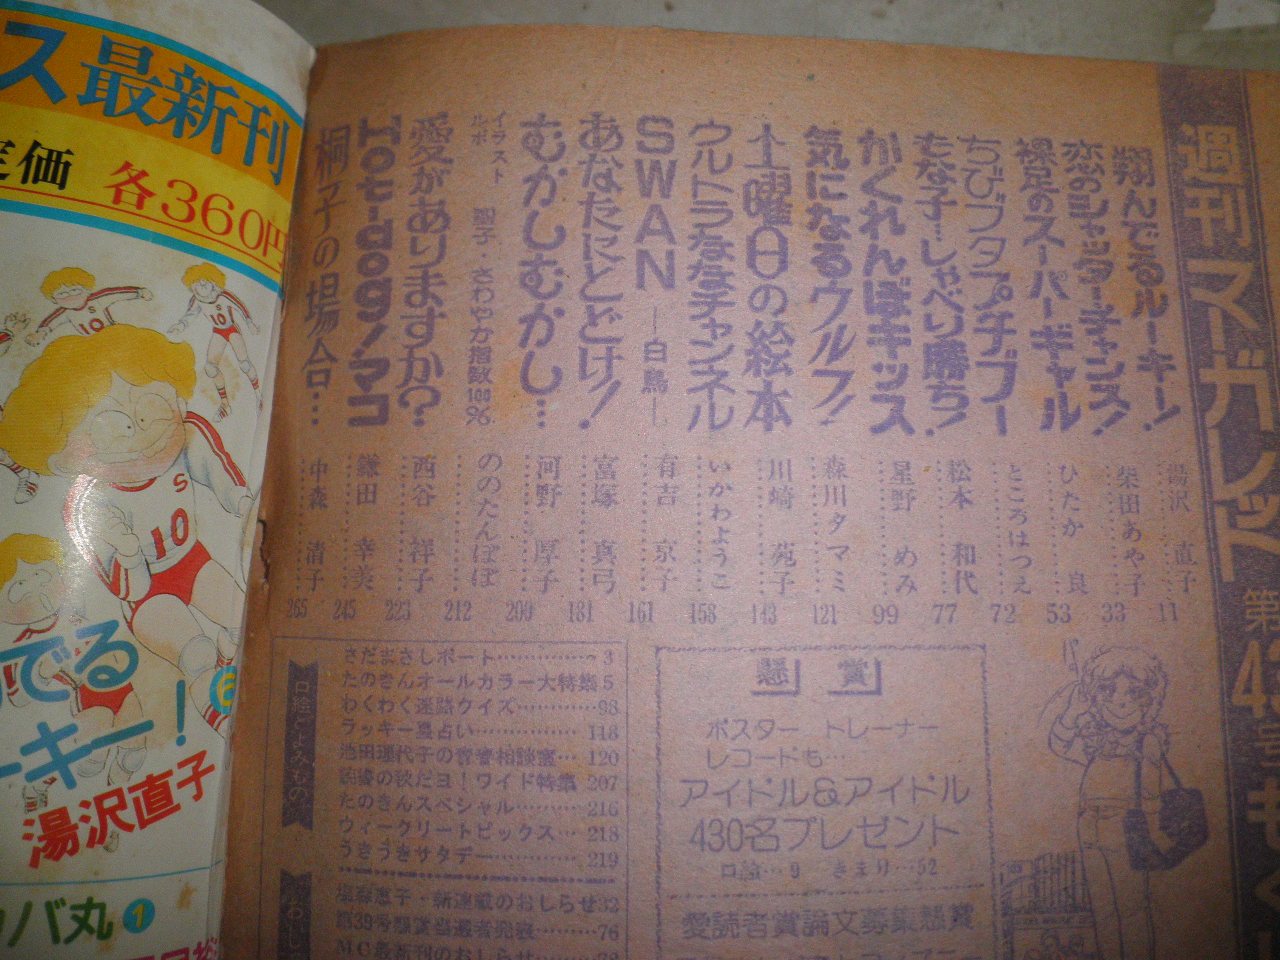 ス最新刊
定価 各360円
S
10
S
10
でる
ーキー!
6
湯沢直子
バ丸 1
週刊マーガレット 第43号もく
翔んでるルーキー! 湯沢 直子 11
恋のシャッターチャンス! 柴田あや子 33
裸足のスーパーギャル ひたか 良 53
ちびブタプチブー ところはつえ 72
もな子…しゃべり勝ち! 松本 和代 77
かくれんぼキッス 星野 めみ 99
気になるウルフ! 森川タマミ 121
土曜日の絵本 川崎 苑子 143
ウルトラななチャンネル いかわようこ 158
SWAN ―白鳥― 有吉 京子 161
あなたにとどけ! 富塚 真弓 181
むかしむかし… 河野 厚子 200
イラストルポ 聖子・さわやか指数100% ののたんぽぽ 212
愛がありますか? 西谷 祥子 223
Hot-dog!マコ 鎌田 幸美 245
桐子の場合… 中森 清子 265
懸賞
ポスター トレーナー
レコードも…
アイドル&アイドル
430名プレゼント
口絵…9 きまり…52
愛読者賞論文募集懸賞
口絵とよみもの
さだまさしポート……………3
たのきんオールカラー大特集5
わくわく迷路クイズ…………98
ラッキー星占い……………118
池田理代子の青春相談室…120
ワイド特集 207
たのきんスペシャル………216
ウィークリートピックス…218
うきうきサタデー…………219
新連載のおしらせ32
第39号懸賞当選者発表………76
MC最新刊のおしらせ……